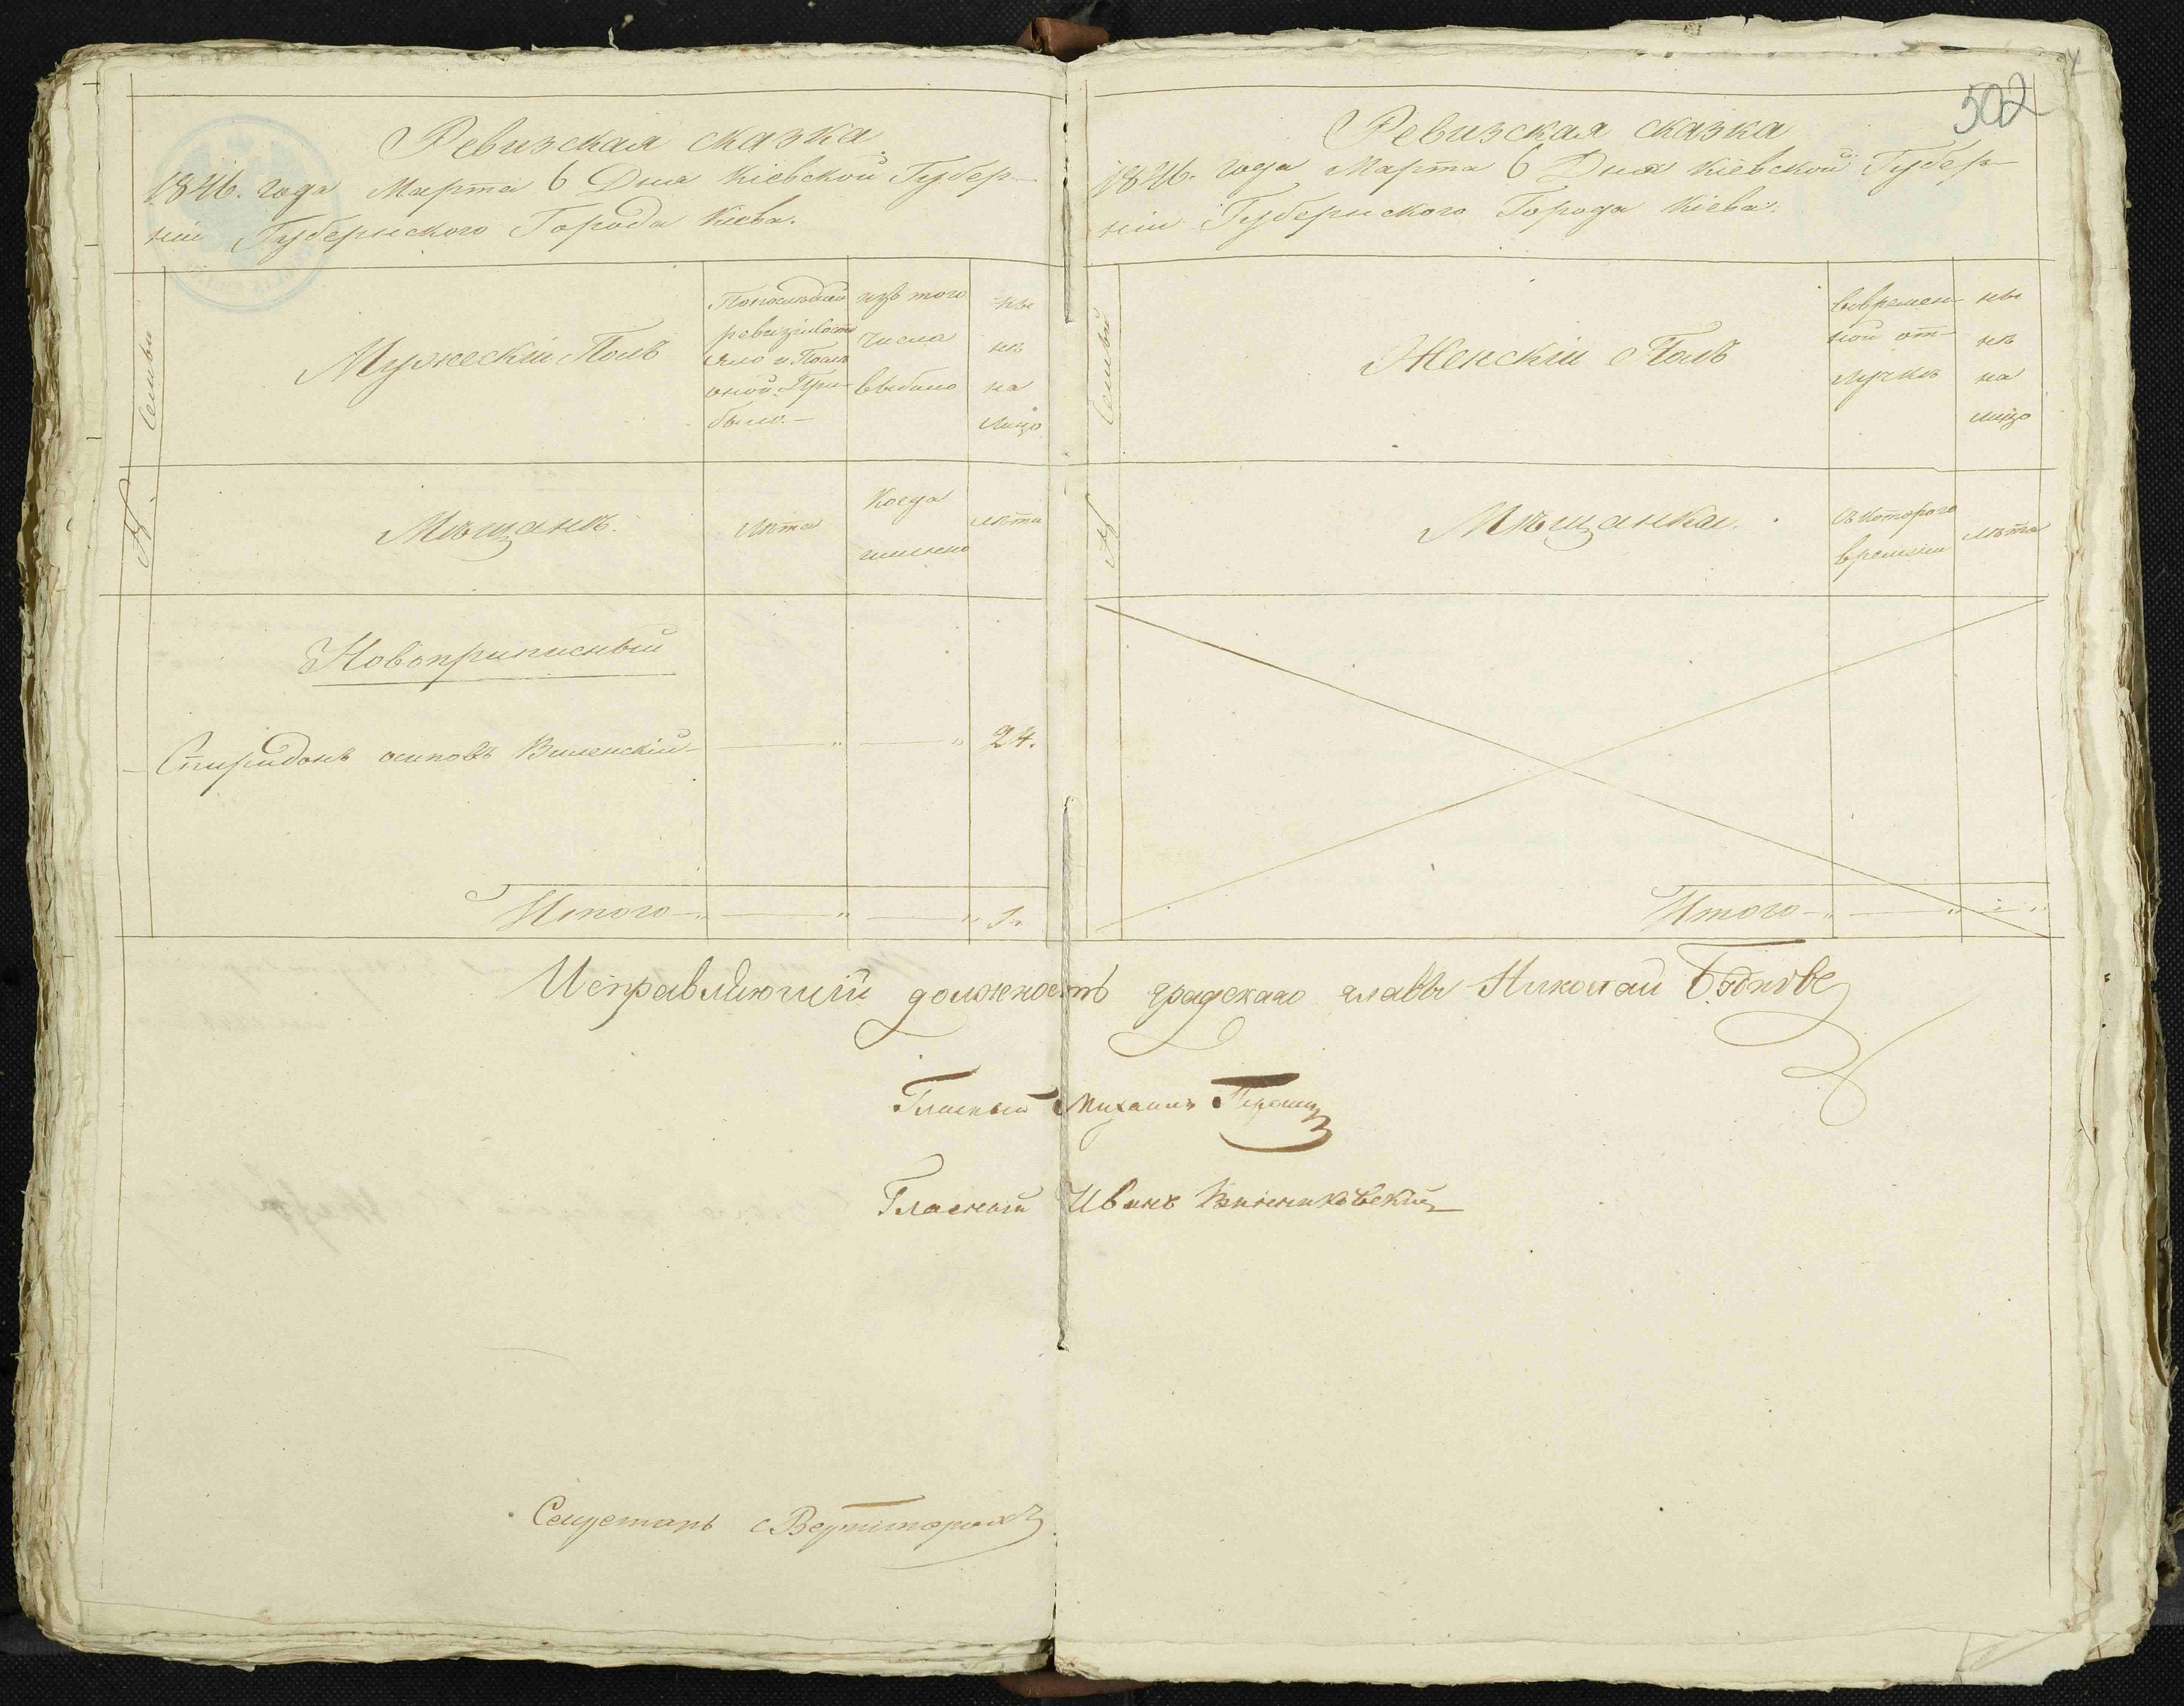 Ревизская сказка
1846. года Марта 6 Дня Кіевской Губер-
ніи Губернского Города Кіева.
№ Семьи
Мужескій Полъ
По последней
ревизіи состо
яло и После
оной При-
было.
изъ того
числа
выбыло
ны
нѣ
на
лицо
Мѣщанъ.
Лѣта
Когда
именно
лѣта
Новоприписный
Спиридонъ осиповъ Виленскій
24.
Итого
1.
502
Ревизская сказка
1846. года Марта 6 Дня Кіевской Губер-
ніи Губернского Города Кіева.
№ Семьи
Женскій Полъ
вовремен-
ной от-
лучкѣ
ны
нѣ
на
лицо
Мѣщанка.
съ которого
времени
лѣта
Итого
Исправляющій должность градскаго главы Николай
Гласный Михаилъ
Гласный Иванъ Винниковскій
Секретарь